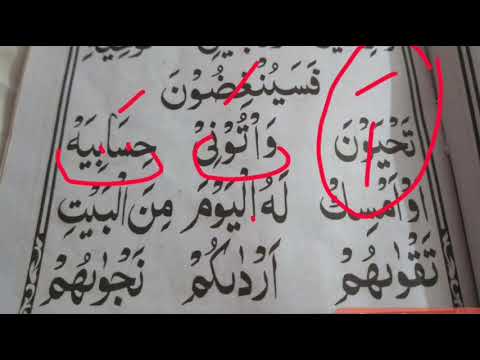 فَسَيُنْغِضُوْنَ
تَحْيَوْنَ وَاْتُوْنِيْ حِسَابِيَهْ
اَوْ اَمْسِكْ لَهُ الْيَوْمَ مِنَ الْبَيْتِ
تَقْوٰىهُمْ اَرْدٰىكُمْ نَجْوٰىهُمْ